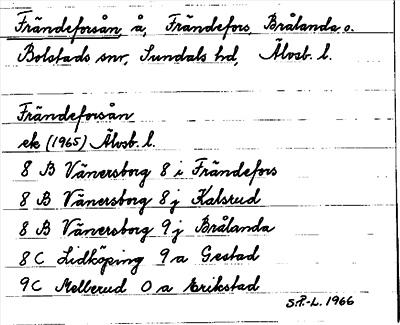 Frändeforsån, å, Frändefors, Brålanda o.
Bolstads snr, Sundals hd, Älvsb. l.
Frändeforsån
ek (1965) Älvsb. l.
8 B Vänersborg 8 i Frändefors
8 B Vänersborg 8 j Kalsrud
8 B Vänersborg 9 j Brålanda
8 C Lidköping 9 a Gestad
9 C Mellerud 0 a Erikstad
S.P.-L. 1966